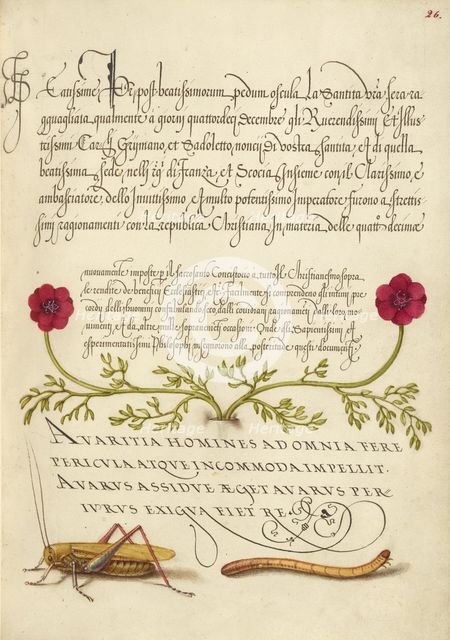 26.
Beatissime Pr̃ post beatissimorum pedum oscula La Santita vr̃a sera ra
gguagliata qualmente a giorni quattordeci Decembre gli Reverendissimi Et Illus
trissimi Car. Grymano, et Sadoletto, noncij Di vostra santita, et di quella
beatissima sede, nelli di franza, et Scocia Insieme con il Clarissimo, e
ambasciatore, dello Inuittissimo, et multo potentissimo Imperatore furono a strettis
simi ragionamenti con la republica Christiana In materia delle quatt. decime
nuouamente imposte p il sacrosanto Concistorio à tutto il Christianesmo sopra
le rendite de beneficij Ecclesiastici et facilmente si comprendeno gli intimi pre
cordij delli huomini considerandosi co dalli coturdiani ragionamenti dalli loro
uimenti, et da altre mille sopraueniti occasioni Onde gli Sapientissimi et
esperimentatissimi Philosophi ne memorono alla posteritade questi documenti
AVARITIA HOMINES AD OMNIA FERE
PERICVLA ATQVE INCOMMODA IMPELLIT.
AVARVS ASSIDVE ÆGET AVARVS PER
IVRVS EXIGVA FIET RE.
Heritage
Heritage
Heritage
Heritage